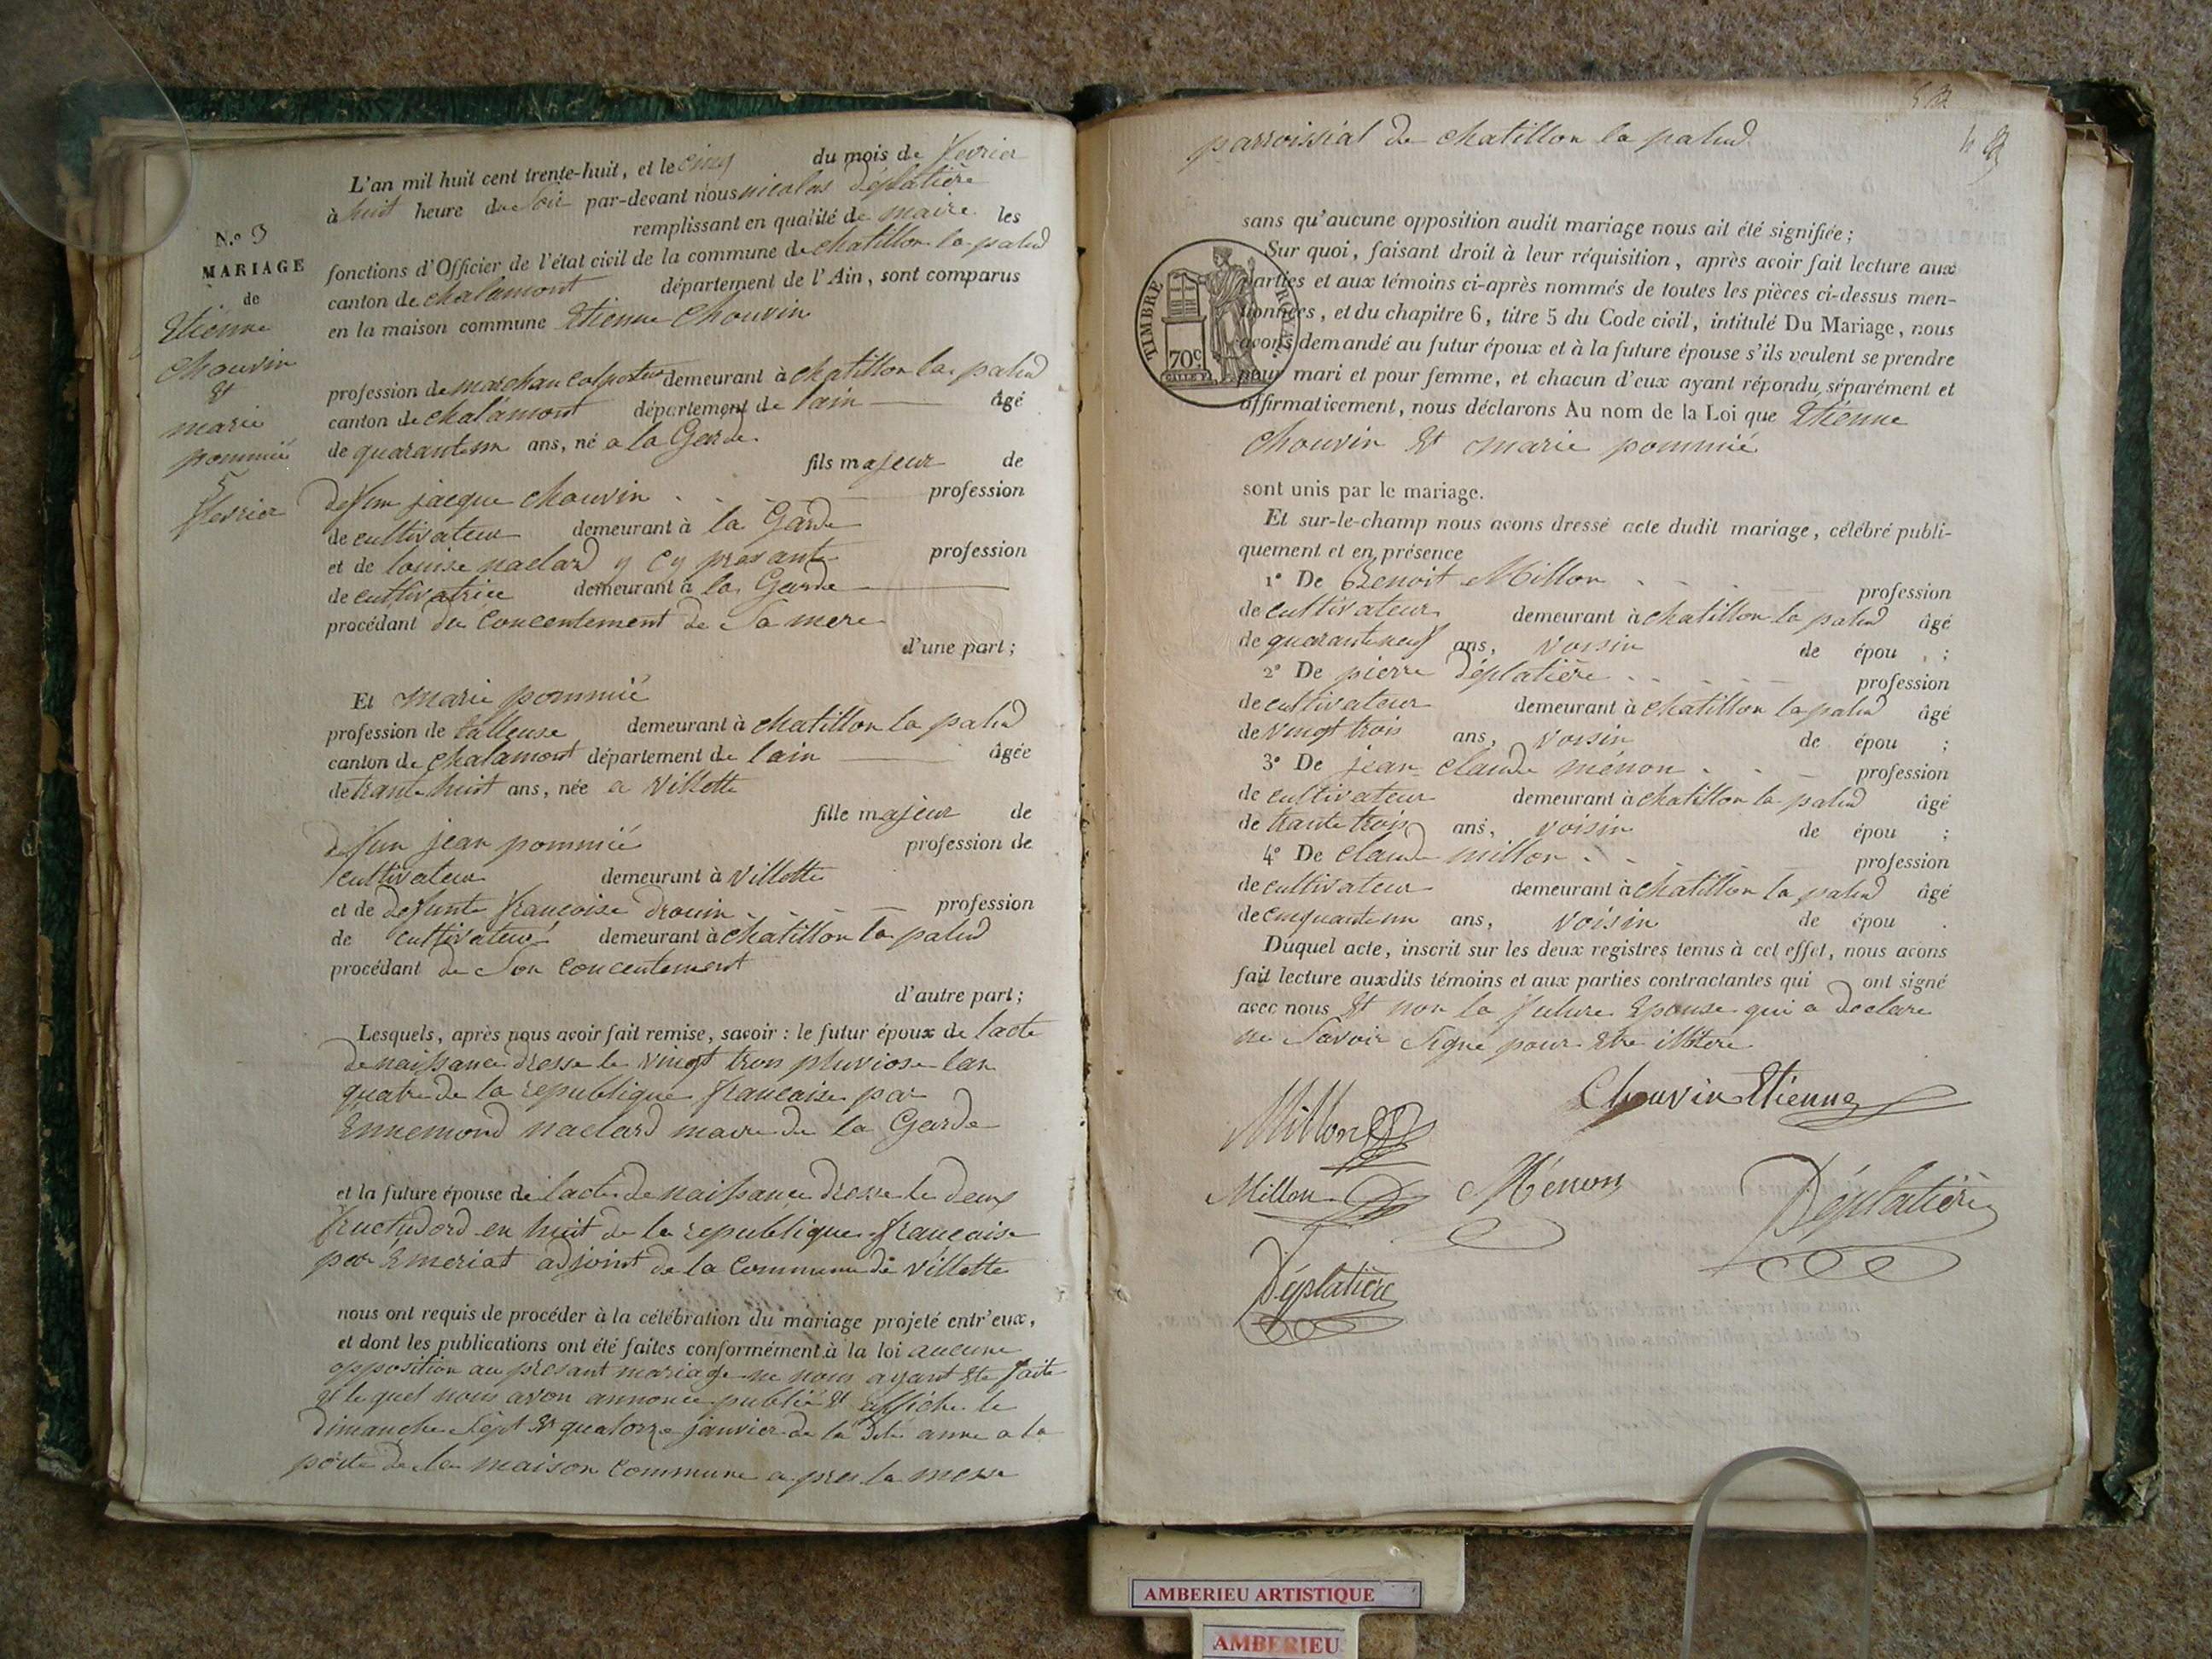 N.º 3
MARIAGE
de
Etienne
chouvin
Et
marie
pommié
5
fevrier
L'an mil huit cent trente-huit, et le cinq du mois de fevrier
à huit heure du Soir par-devant nous nicolas Déplatière
remplissant en qualité de maire les
fonctions d'Officier de l'état civil de la commune de chatillon la palud
canton de chalamont département de l'Ain, sont comparus
en la maison commune Etienne Chouvin
profession de marchan colporteur demeurant à chatillon la palud
canton de chalamont département de lain âgé
de quarantun ans, né a la Garde
fils majeur de
defun jacque chouvin profession
de cultivateur demeurant à la Garde
et de louise naclard y cy presante profession
de cultivatrice demeurant à la Garde
procédant du Concentement de Sa mere
d'une part;
Et marie pommié
profession de talleuse demeurant à chatillon la palud
canton de chalamont département de lain âgée
de trante huit ans, née a villette
fille majeur de
defun jean pommié profession de
cultivateur demeurant à villette
et de defunte francoise drouin profession
de cultivateur demeurant à chatillon la palud
procédant de Son Concentement
d'autre part;
Lesquels, après nous avoir fait remise, savoir: le futur époux de lacte
de naissance dresse le vingt trois pluviose lan
quatre de la republique francaise par
Ennemond naclard maire de la Garde
et la future épouse de lacte de naissance dresse le deux
fructudord en huit de la republique francaise
par Emeriat adjoint de la Commune de villette
nous ont requis de procéder à la célébration du mariage projeté entr'eux,
et dont les publications ont été faites conformément à la loi aucune
opposition au presant mariage ne nous ayant Ete faite
et lequel nous avon annonce publié Et affiche le
dimanche Sept Et quatorze janvier de la dite anne a la
porte de la maison commune a pres la messe
parroissial de chatillon la palud
sans qu'aucune opposition audit mariage nous ait été signifiée;
Sur quoi, faisant droit à leur réquisition, après avoir fait lecture aux
parties et aux témoins ci-après nommés de toutes les pièces ci-dessus men-
tionnées, et du chapitre 6, titre 5 du Code civil, intitulé Du Mariage, nous
avons demandé au futur époux et à la future épouse s'ils veulent se prendre
pour mari et pour femme, et chacun d'eux ayant répondu séparément et
affirmativement, nous déclarons Au nom de la Loi que Etienne
chouvin Et marie pommié
TIMBRE ROYAL
70c.
sont unis par le mariage.
Et sur-le-champ nous avons dressé acte dudit mariage, célébré publi-
quement et en présence
1º De Benoit Millon profession
de cultivateur demeurant à chatillon la palud âgé
de quaranteneuf ans, voisin de épou ;
2º De pierre Déplatière profession
de cultivateur demeurant à chatillon la palud âgé
de vingt trois ans, voisin de épou ;
3º De jean claude ménon profession
de cultivateur demeurant à chatillon la palud âgé
de trante trois ans, voisin de épou ;
4º De claude millon profession
de cultivateur demeurant à chatillon la palud âgé
de cinquantun ans, voisin de épou .
Duquel acte, inscrit sur les deux registres tenus à cet effet, nous avons
fait lecture auxdits témoins et aux parties contractantes qui ont signé
avec nous Et non la future Epouse qui a declare
ne Savoir Signe pour Etre illitere
Chouvin Etienne
Millon
Millon Ménon Déplatière
Déplatière
AMBERIEU ARTISTIQUE
AMBERIEU